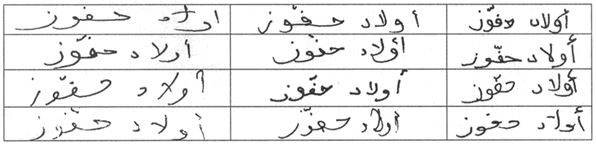 أولاد حفّوز أولاد حفّوز اولاد حفوز
أولاد حفّوز أولاد حفّوز أولاد حفّوز
أولاد حفّوز أولاد حفّوز أولاد حفّوز
أولاد حفوز أولاد حفّوز أولاد حفّوز